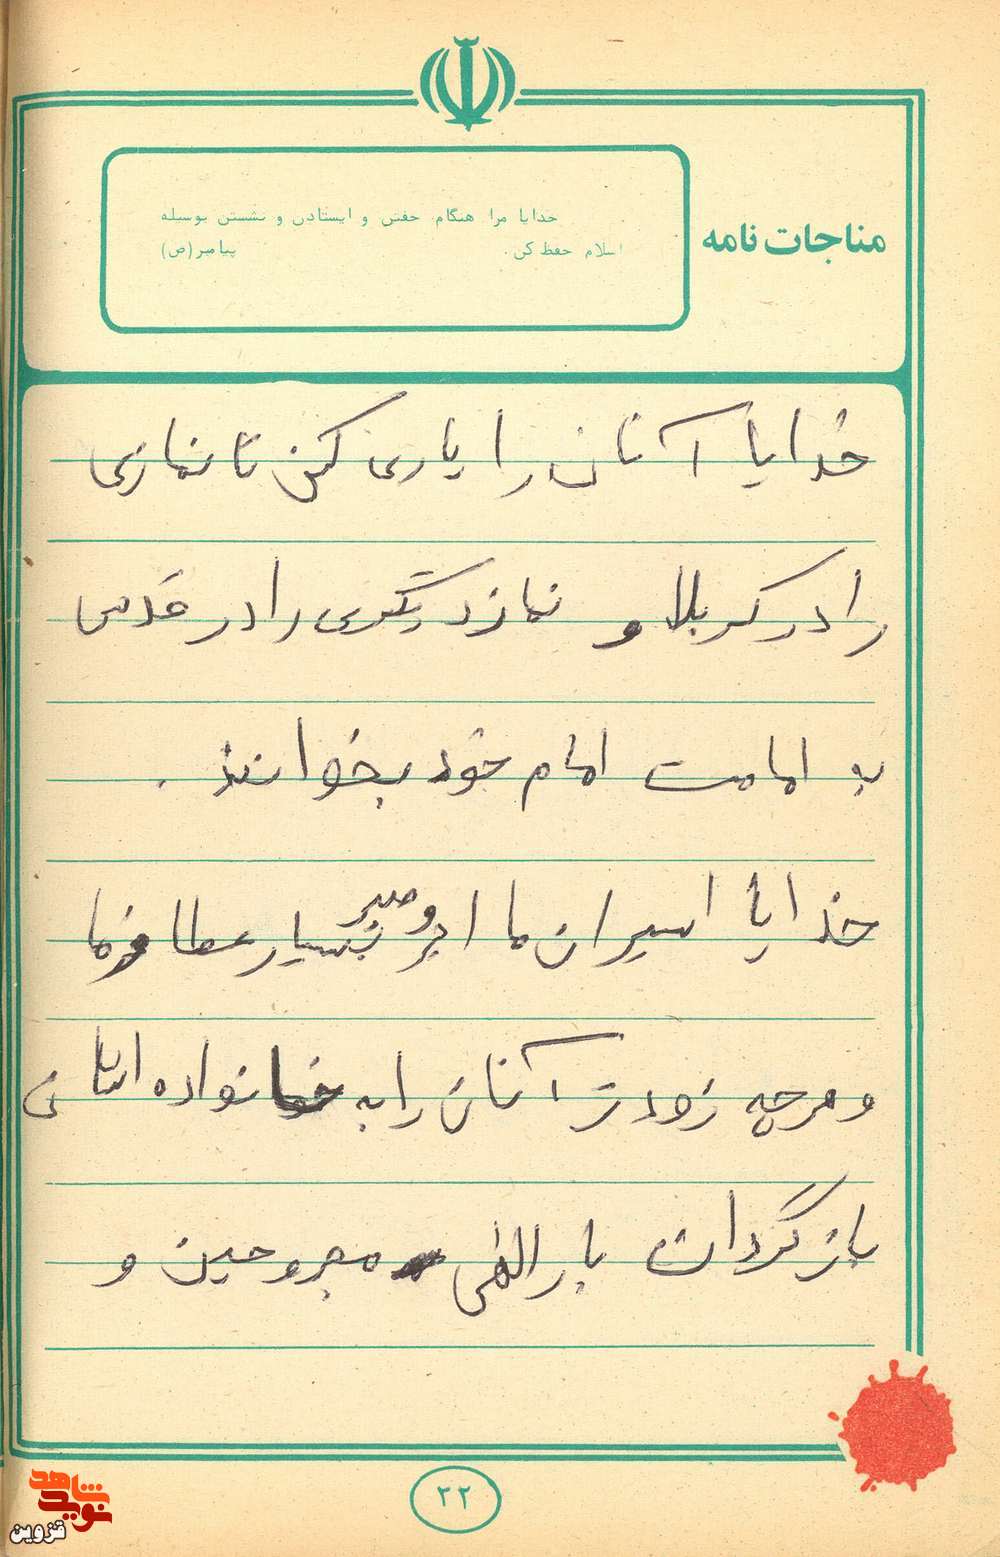 مناجات نامه
خدایا مرا هنگام خفتن و ایستادن و نشستن بوسیله
اسلام حفظ کن. پیامبر(ص)
خدایا آنان را یاری کن تا نمازی
را در کربلا و نماز دیگری را در قدس
به امامت امام خود بخوانند .
خدایا اسیران ما اجر و صبر بسیار عطا فرما
و هرچه زودتر آنان را به خانواده اشان
بازگردان بارالهی مجروحین و
۲۲
نوید شاهد
قزوین